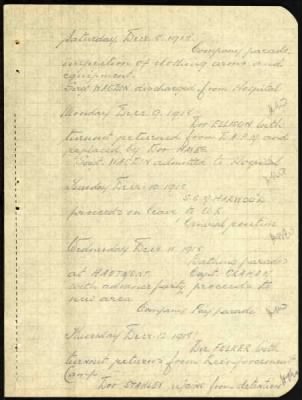 Saturday Decr 8. 1915.
Company parade,
inspection of clothing arms and
equipment.
discharged from Hospital
Monday Decr 9. 1915
Dvr ELLISON with
turnout returned from and
replaced by Dvr
admitted to Hospital
Tuesday Decr 10. 1915
proceeds on leave to U.K.
General routine
Wednesday Decr 11. 1915
Bathing parades
at HAUTMONT. Capt.
with advance party proceeds to
new area
Company Pay parade
Thursday Decr 12. 1915
Dvr FULKER with
turnout returns from Reinforcement
Camp
Dvr STANLEY rejoins from detention